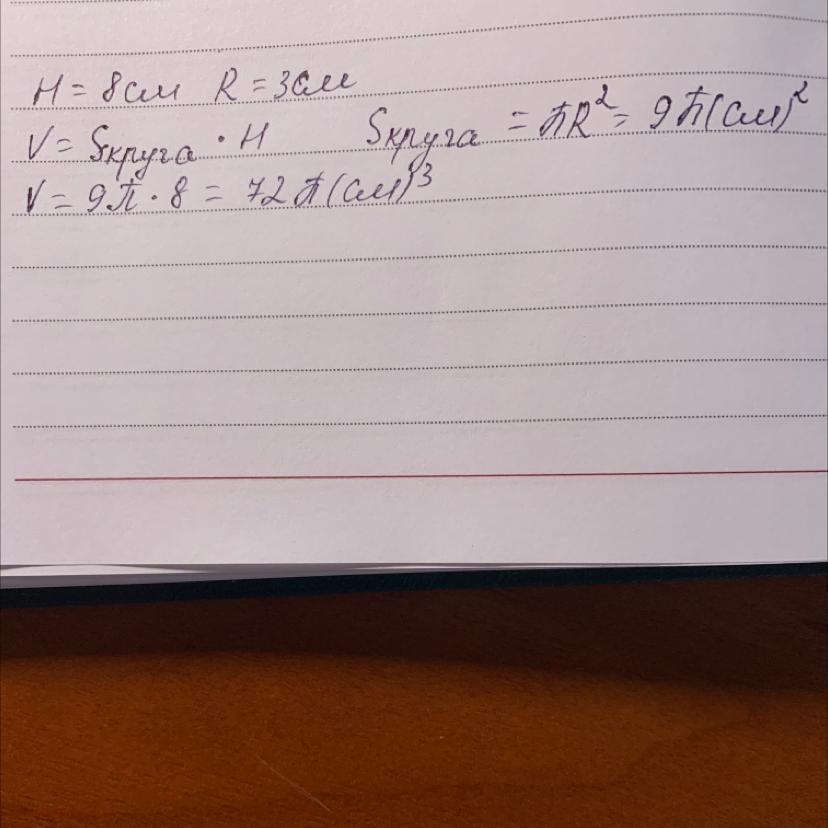 H = 8см R = 3см
V = Sкруга · H Sкруга = πR² = 9π(см)²
V = 9π · 8 = 72π(см)³